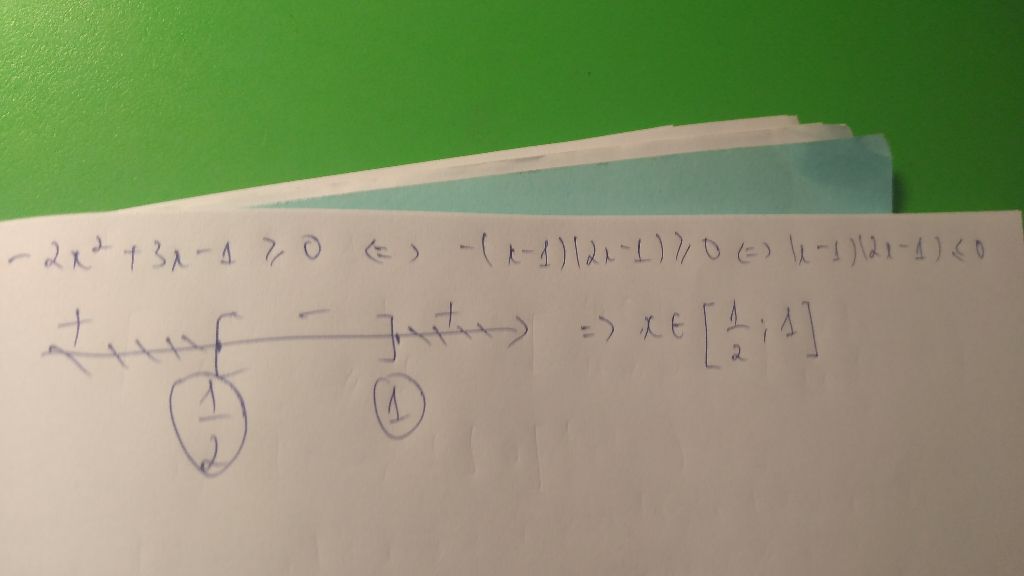 -2x² + 3x - 1 ⩾ 0 <=> -(x-1)(2x-1) ⩾ 0 <=> (x-1)(2x-1) ⩽ 0
+ [ - ] + => x ∈ [1/2 ; 1]
1/2 1